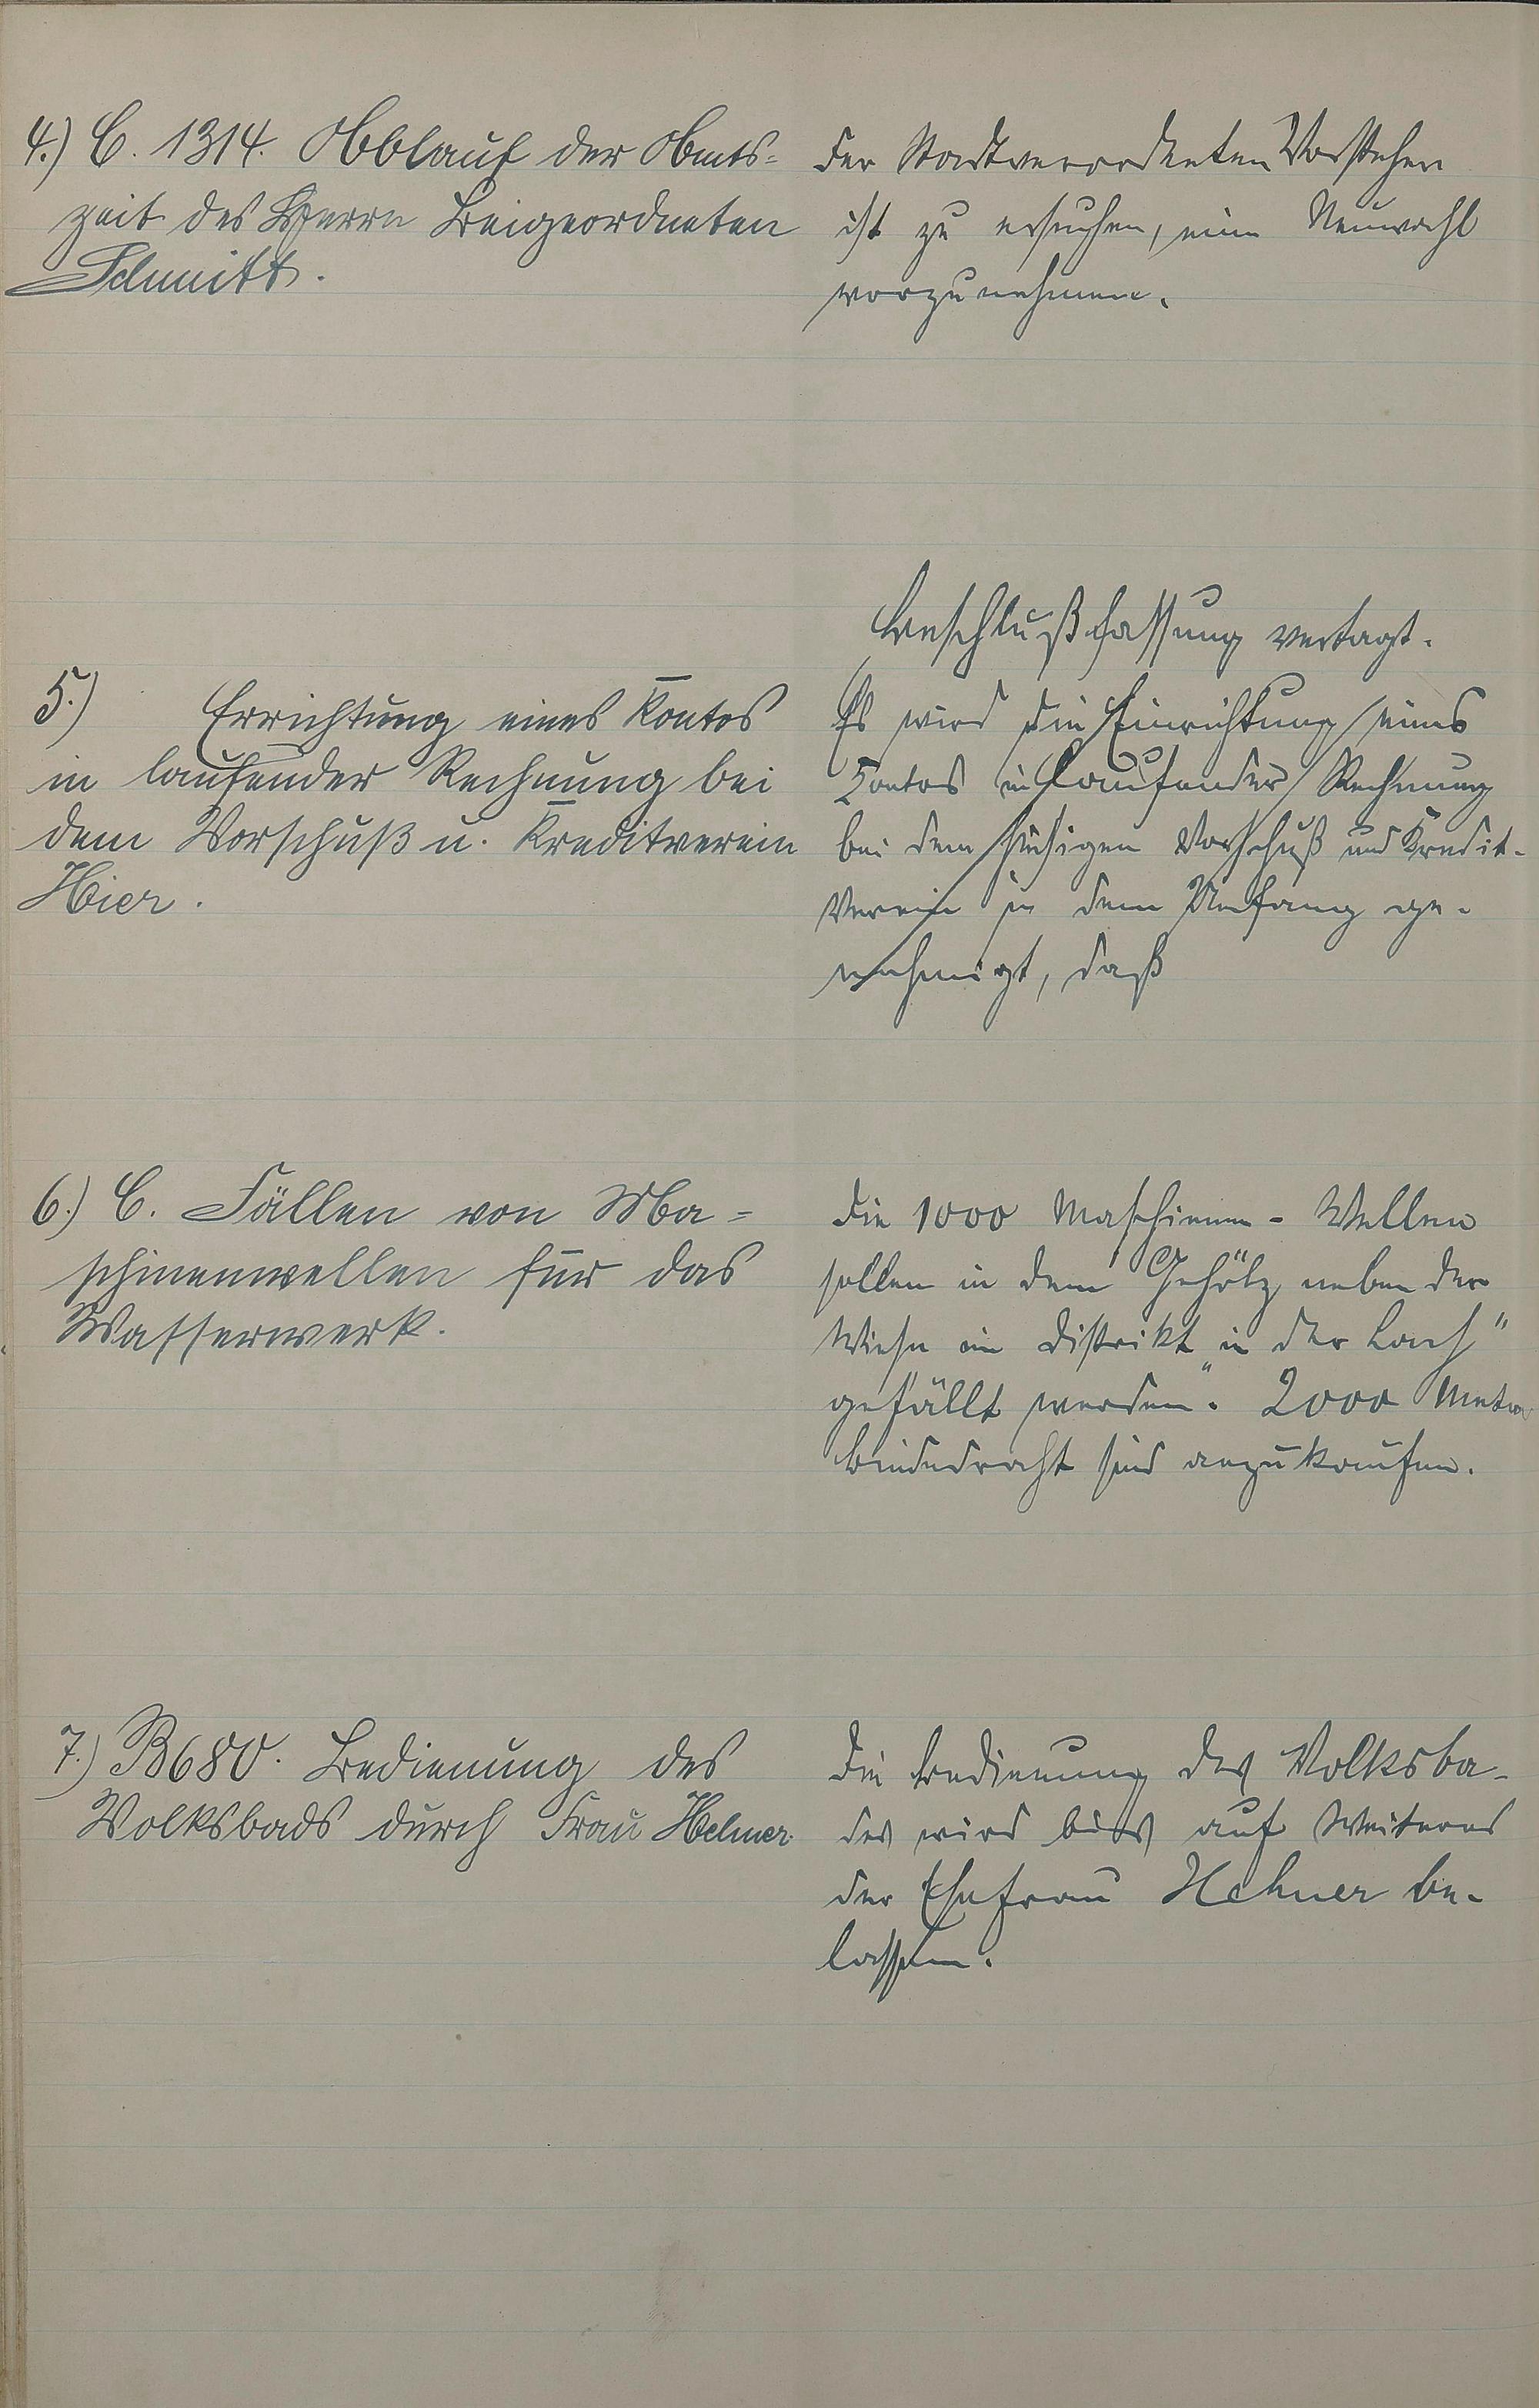 4.) C. 1314. Ablauf der Amts-
zeit des Herrn Beigeordneten
Schmitt.
Der Stadtverordneten Vorsteher
ist zu ersuchen, eine Neuwahl
vorzunehmen.
5.) Errichtung eines Kontos
in laufender Rechnung bei
dem Vorschuß u. Kreditverein
Hier.
Beschlußfassung vertagt.
Es wird die Einrichtung eines
Kontos in laufender Rechnung
bei dem hiesigen Vorschuß und Kredit-
Verein in dem Umfang ge-
nehmigt, daß
6.) C. Fällen von Ma-
schinenwellen für das
Wasserwerk.
Die 1000 Maschinen-Wellen
sollen in dem Gehölz neben der
Wiese im Distrikt „in der Lach"
gefällt werden. 2000 Meter
Bindedraht sind anzukaufen.
7.) B680. Bedienung des
Volksbads durch Frau Hehner.
Die Bedienung des Volksba-
des wird bis auf Weiteres
der Ehefrau Hehner be-
lassen.